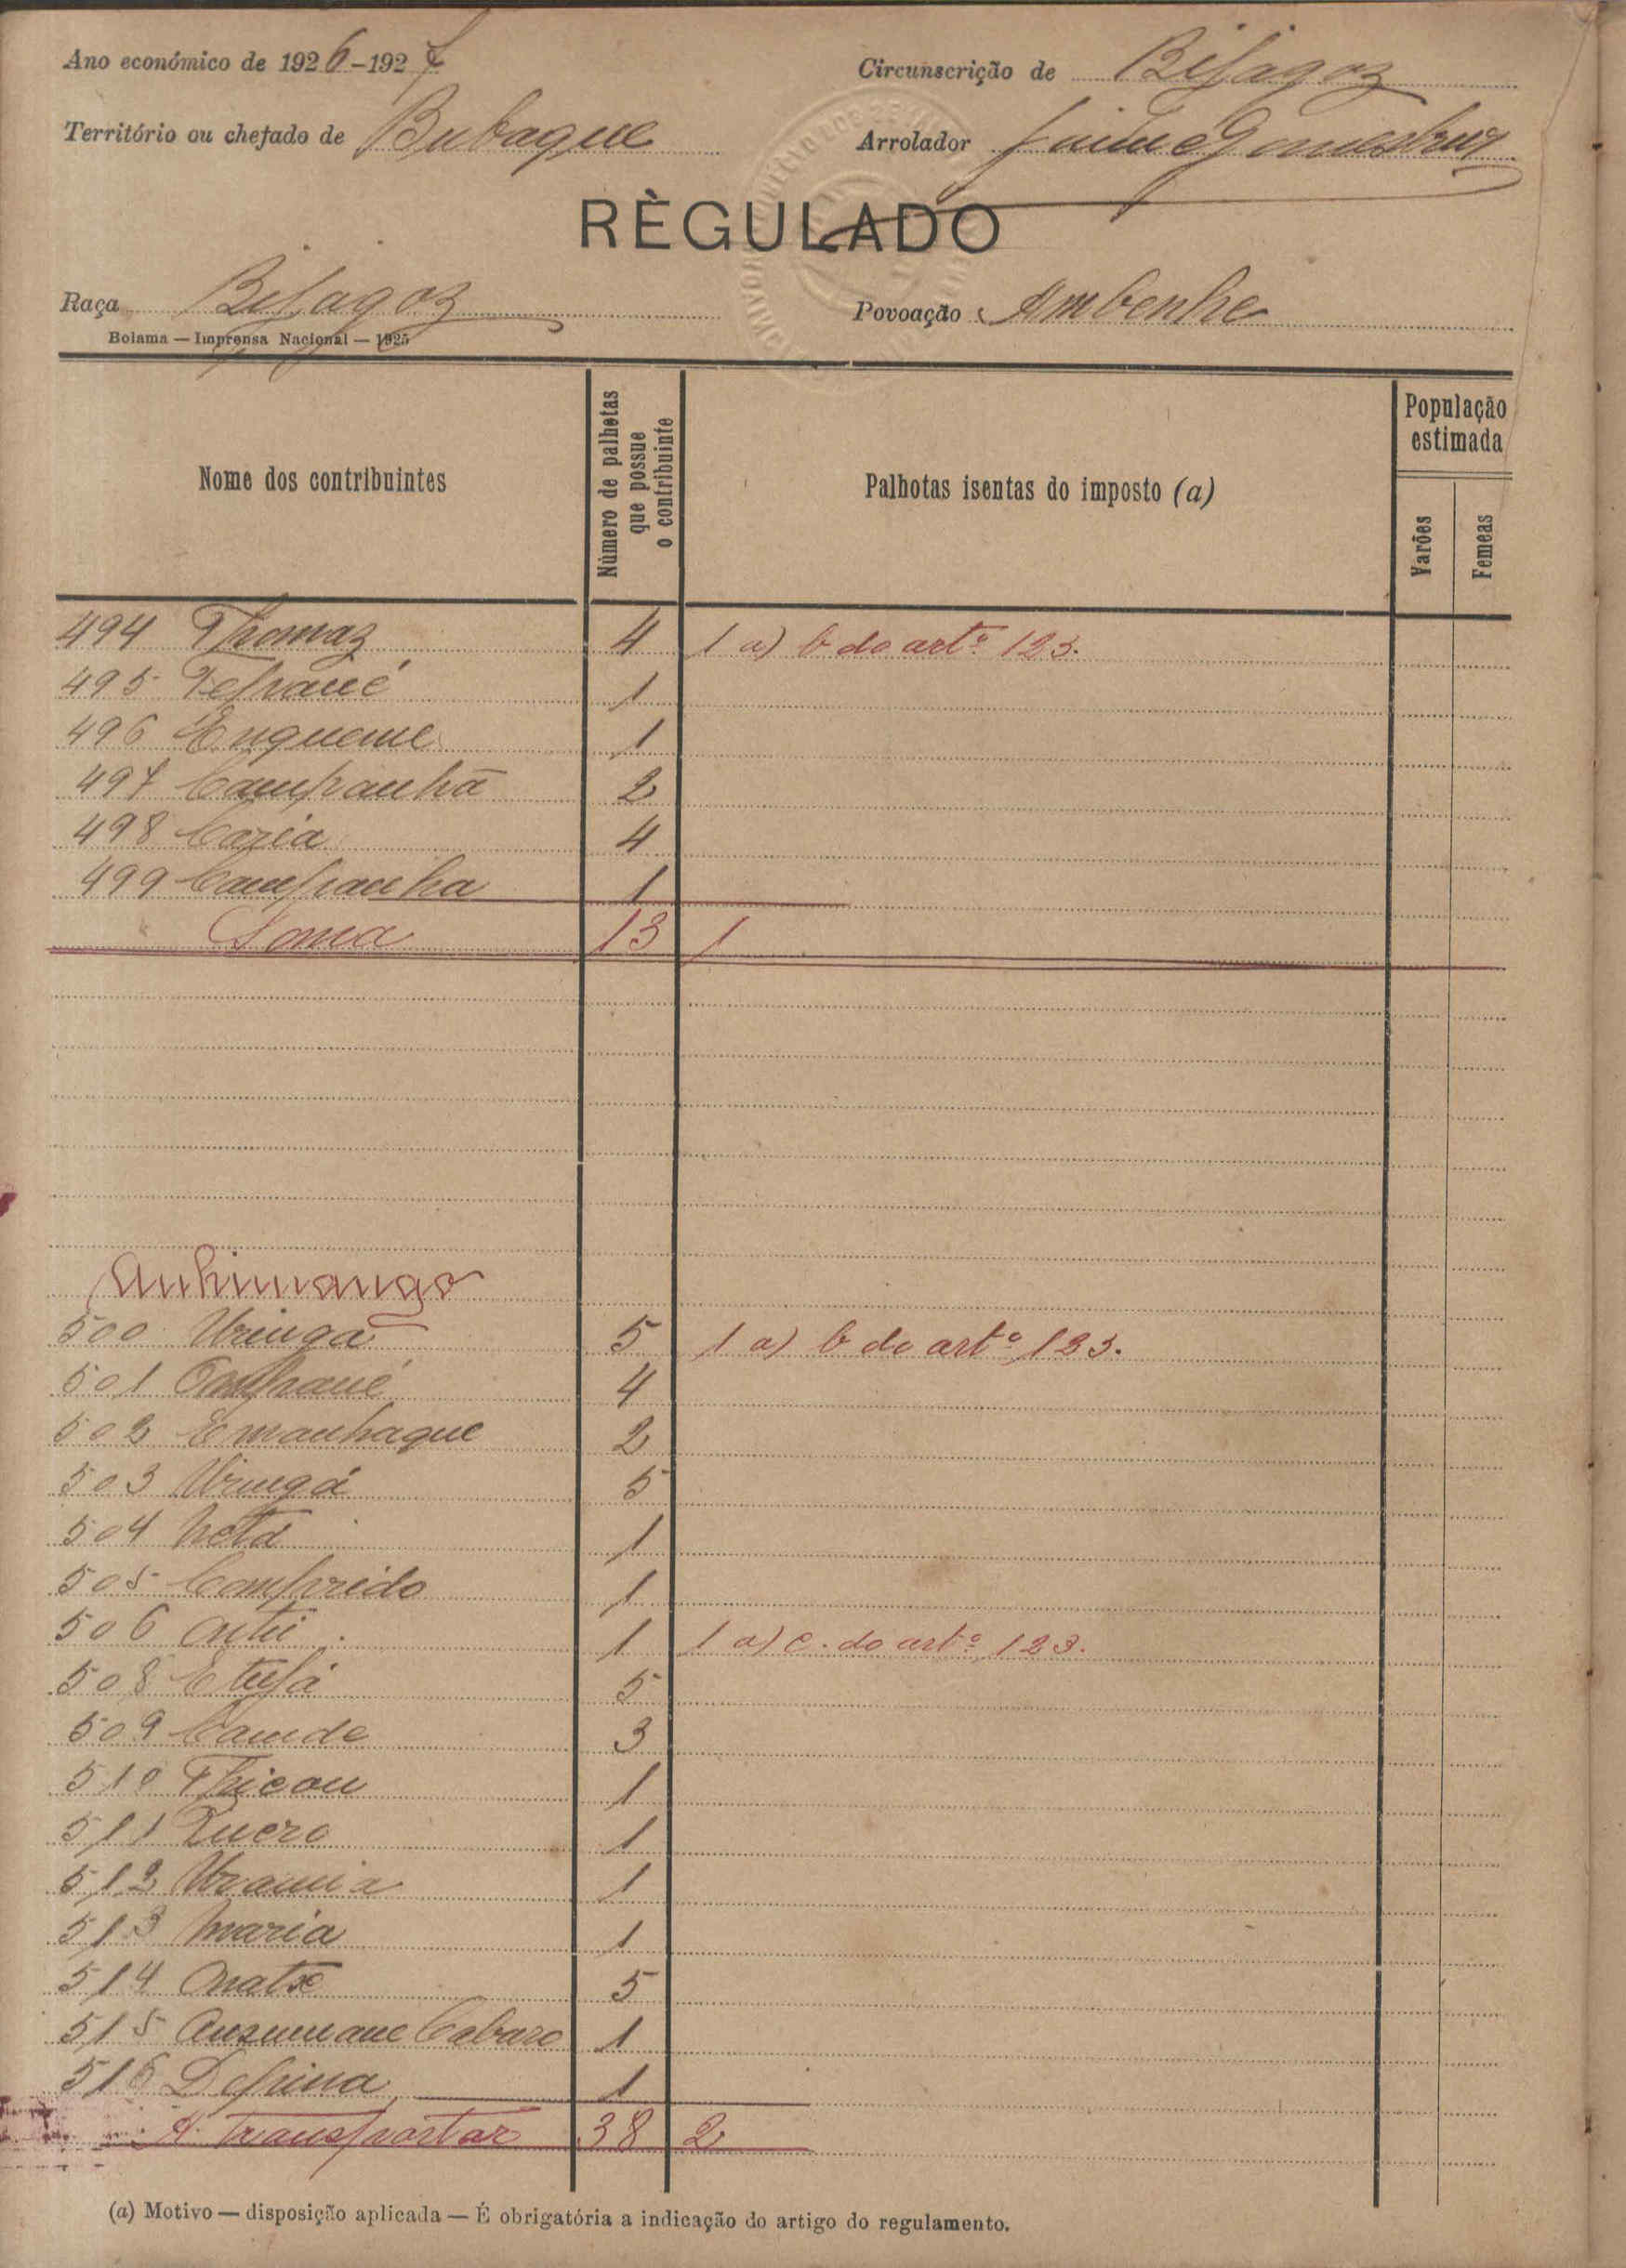 Ano económico de 1926-1927
Circunscrição de Bijagoz
Território ou chefado de Bubaque
Arrolador Jaime Gomes
RÈGULADO
Raça Bijagoz
Povoação Ambenhe
Bolama — Imprensa Nacional — 1925
Nome dos contribuintes
Número de palhetas que possue o contribuinte
Palhotas isentas do imposto (a)
População estimada
Varões
Femeas
494 Thomaz 4 1 a) b do artº 123.
495 1
496 Enqueme 1
497 Campanhã 2
498 Caria 4
499 Campanha 1
Soma 13 1
Anhimango
500 Uringa 5 1 a) b do artº 123.
501 4
502 Emanhaque 2
503 Uringá 5
504 Neta 1
505 Comprido 1
506 1 1 a) c. do artº 123.
508 5
509 Camde 3
510 1
511 Quero 1
512 1
513 Maria 1
514 5
515 Ansumane Cabaro 1
516 Depina 1
A transportar 38 2
(a) Motivo — disposição aplicada — É obrigatória a indicação do artigo do regulamento.